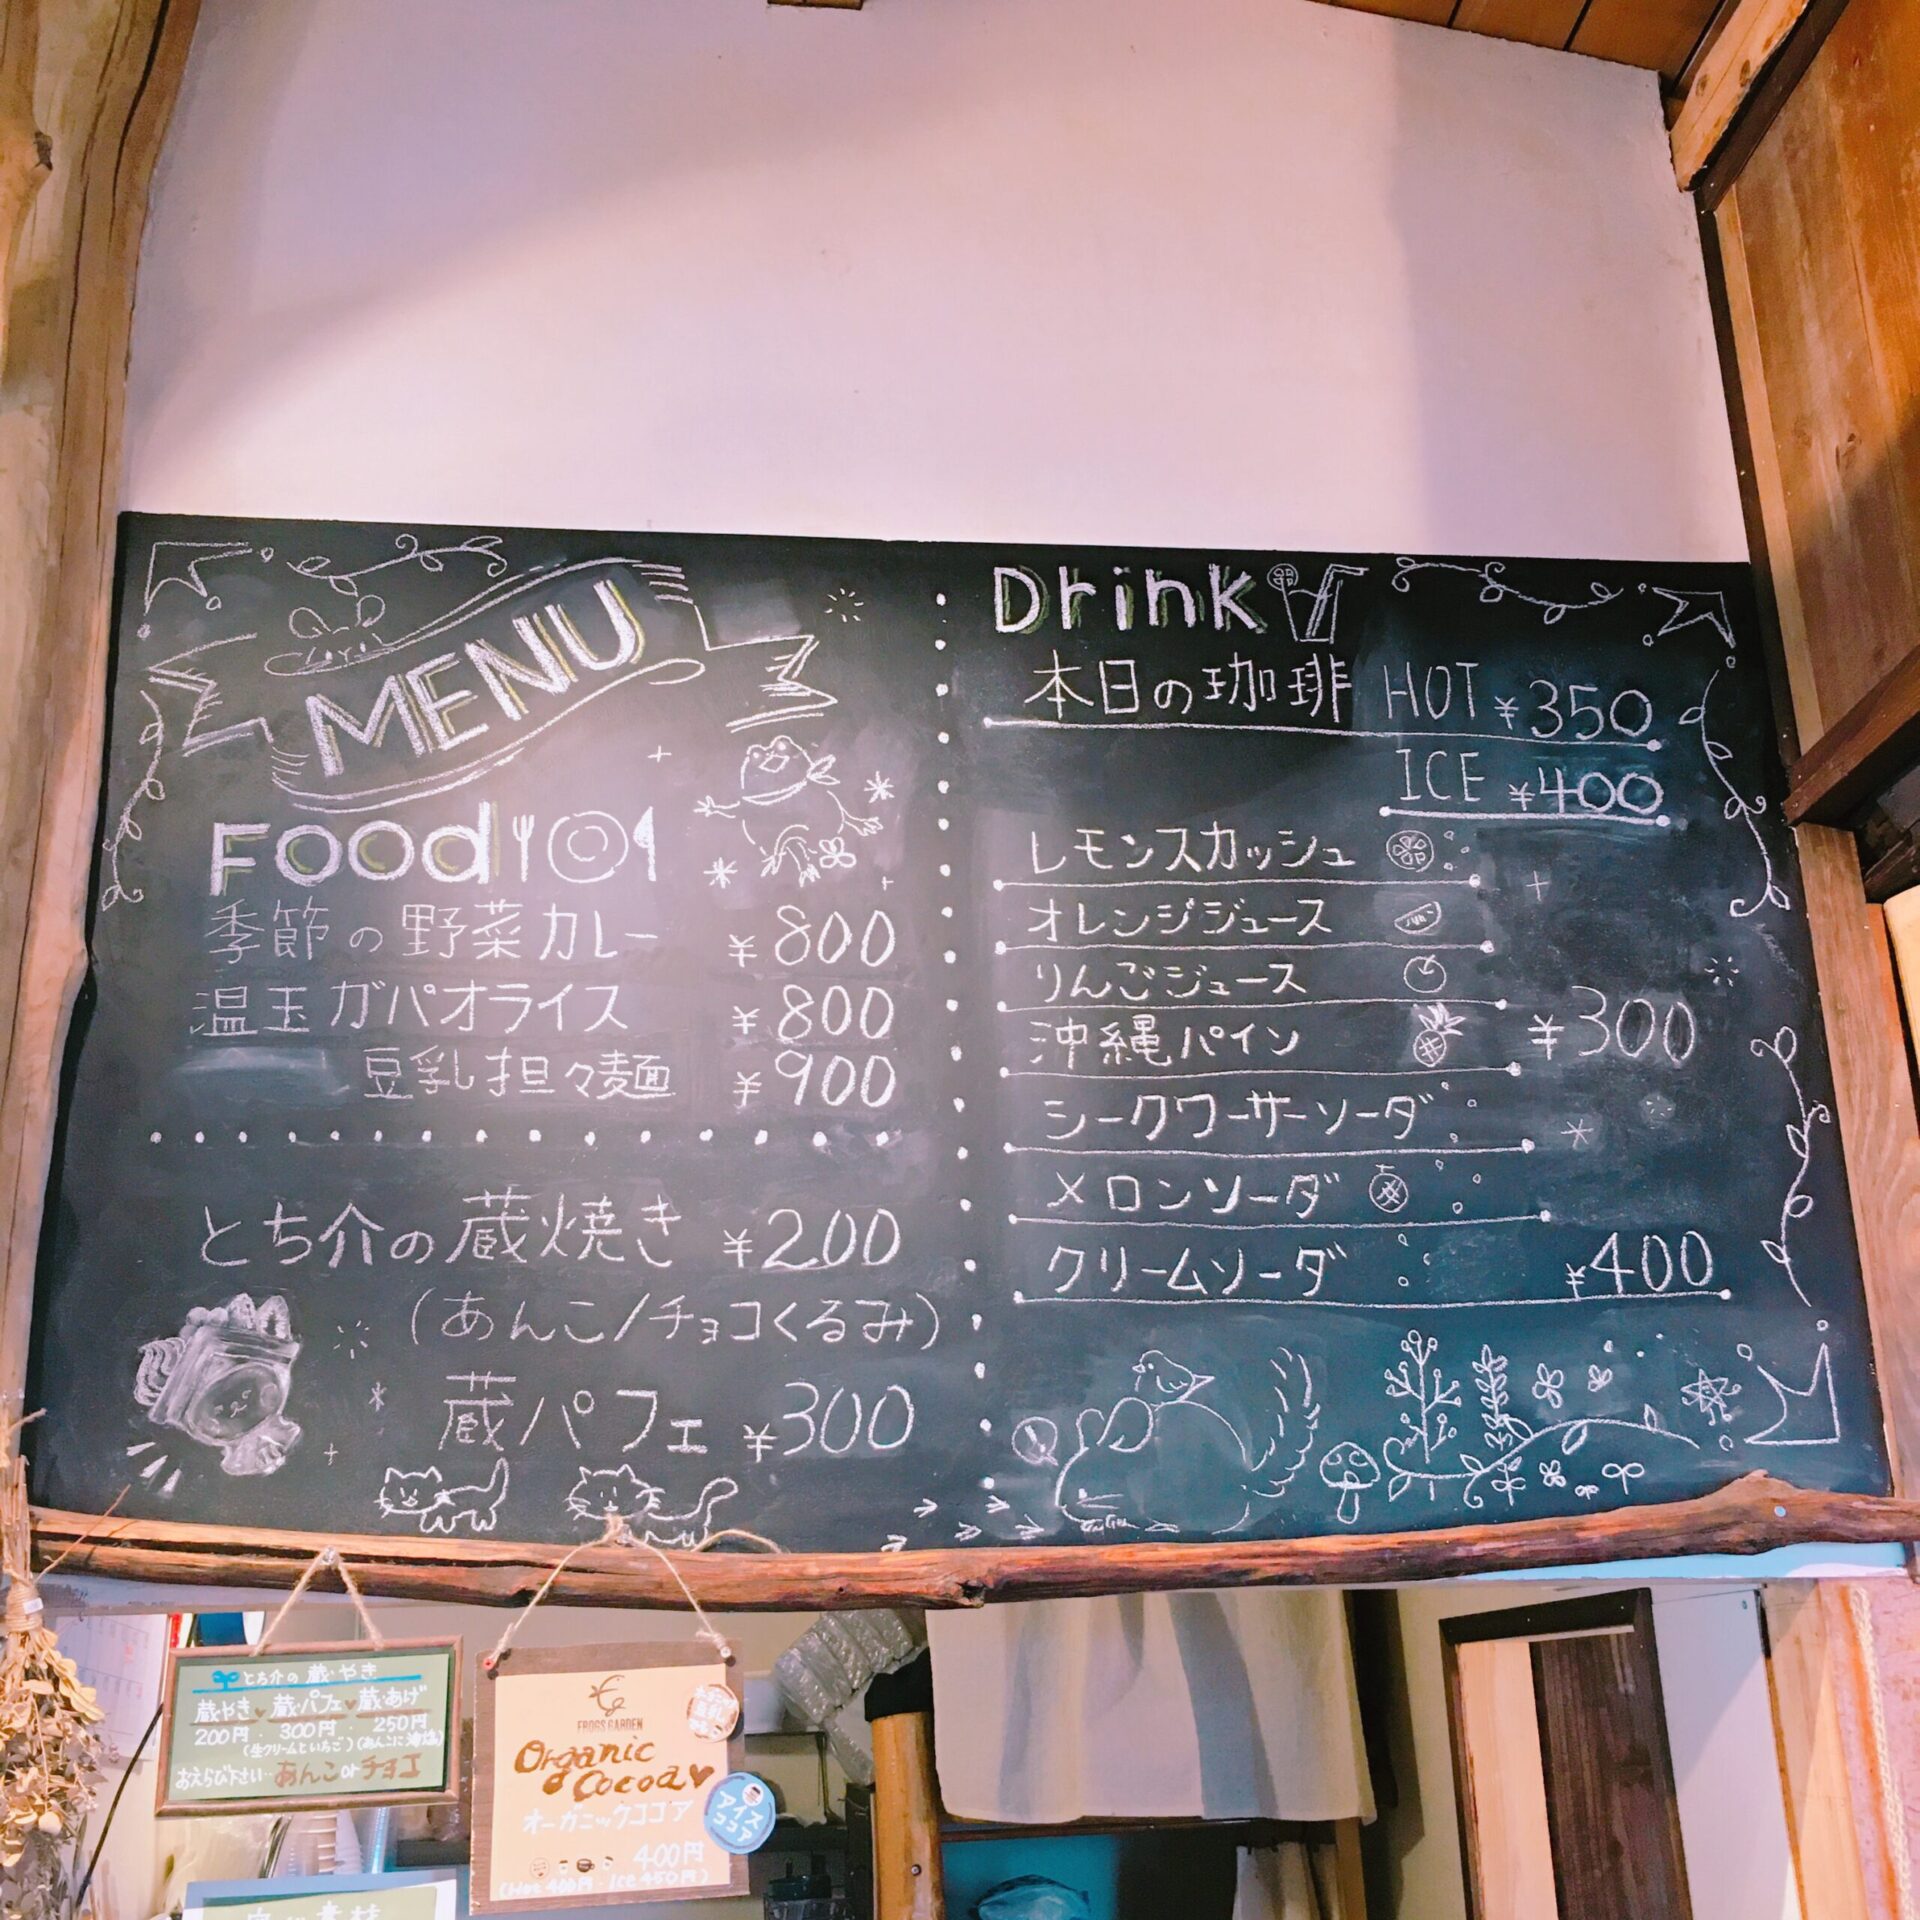 MENU
Food
季節の野菜カレー ¥800
温玉ガパオライス ¥800
豆乳担々麺 ¥900
とち介の蔵焼き ¥200
(あんこ/チョコくるみ)
蔵パフェ ¥300
Drink
本日の珈琲 HOT ¥350
ICE ¥400
レモンスカッシュ
オレンジジュース
りんごジュース
沖縄パイン ¥300
シークワーサーソーダ
メロンソーダ
クリームソーダ ¥400
とち介の蔵やき
蔵やき 蔵パフェ 蔵あげ
200円・300円・250円
(生クリームといちご)
おえらび下さい…あんこorチョコ
FROGS GARDEN
Organic
Cocoa
オーガニックココア
400円
(Hot 400円・Ice 450円)
アイス
ココア